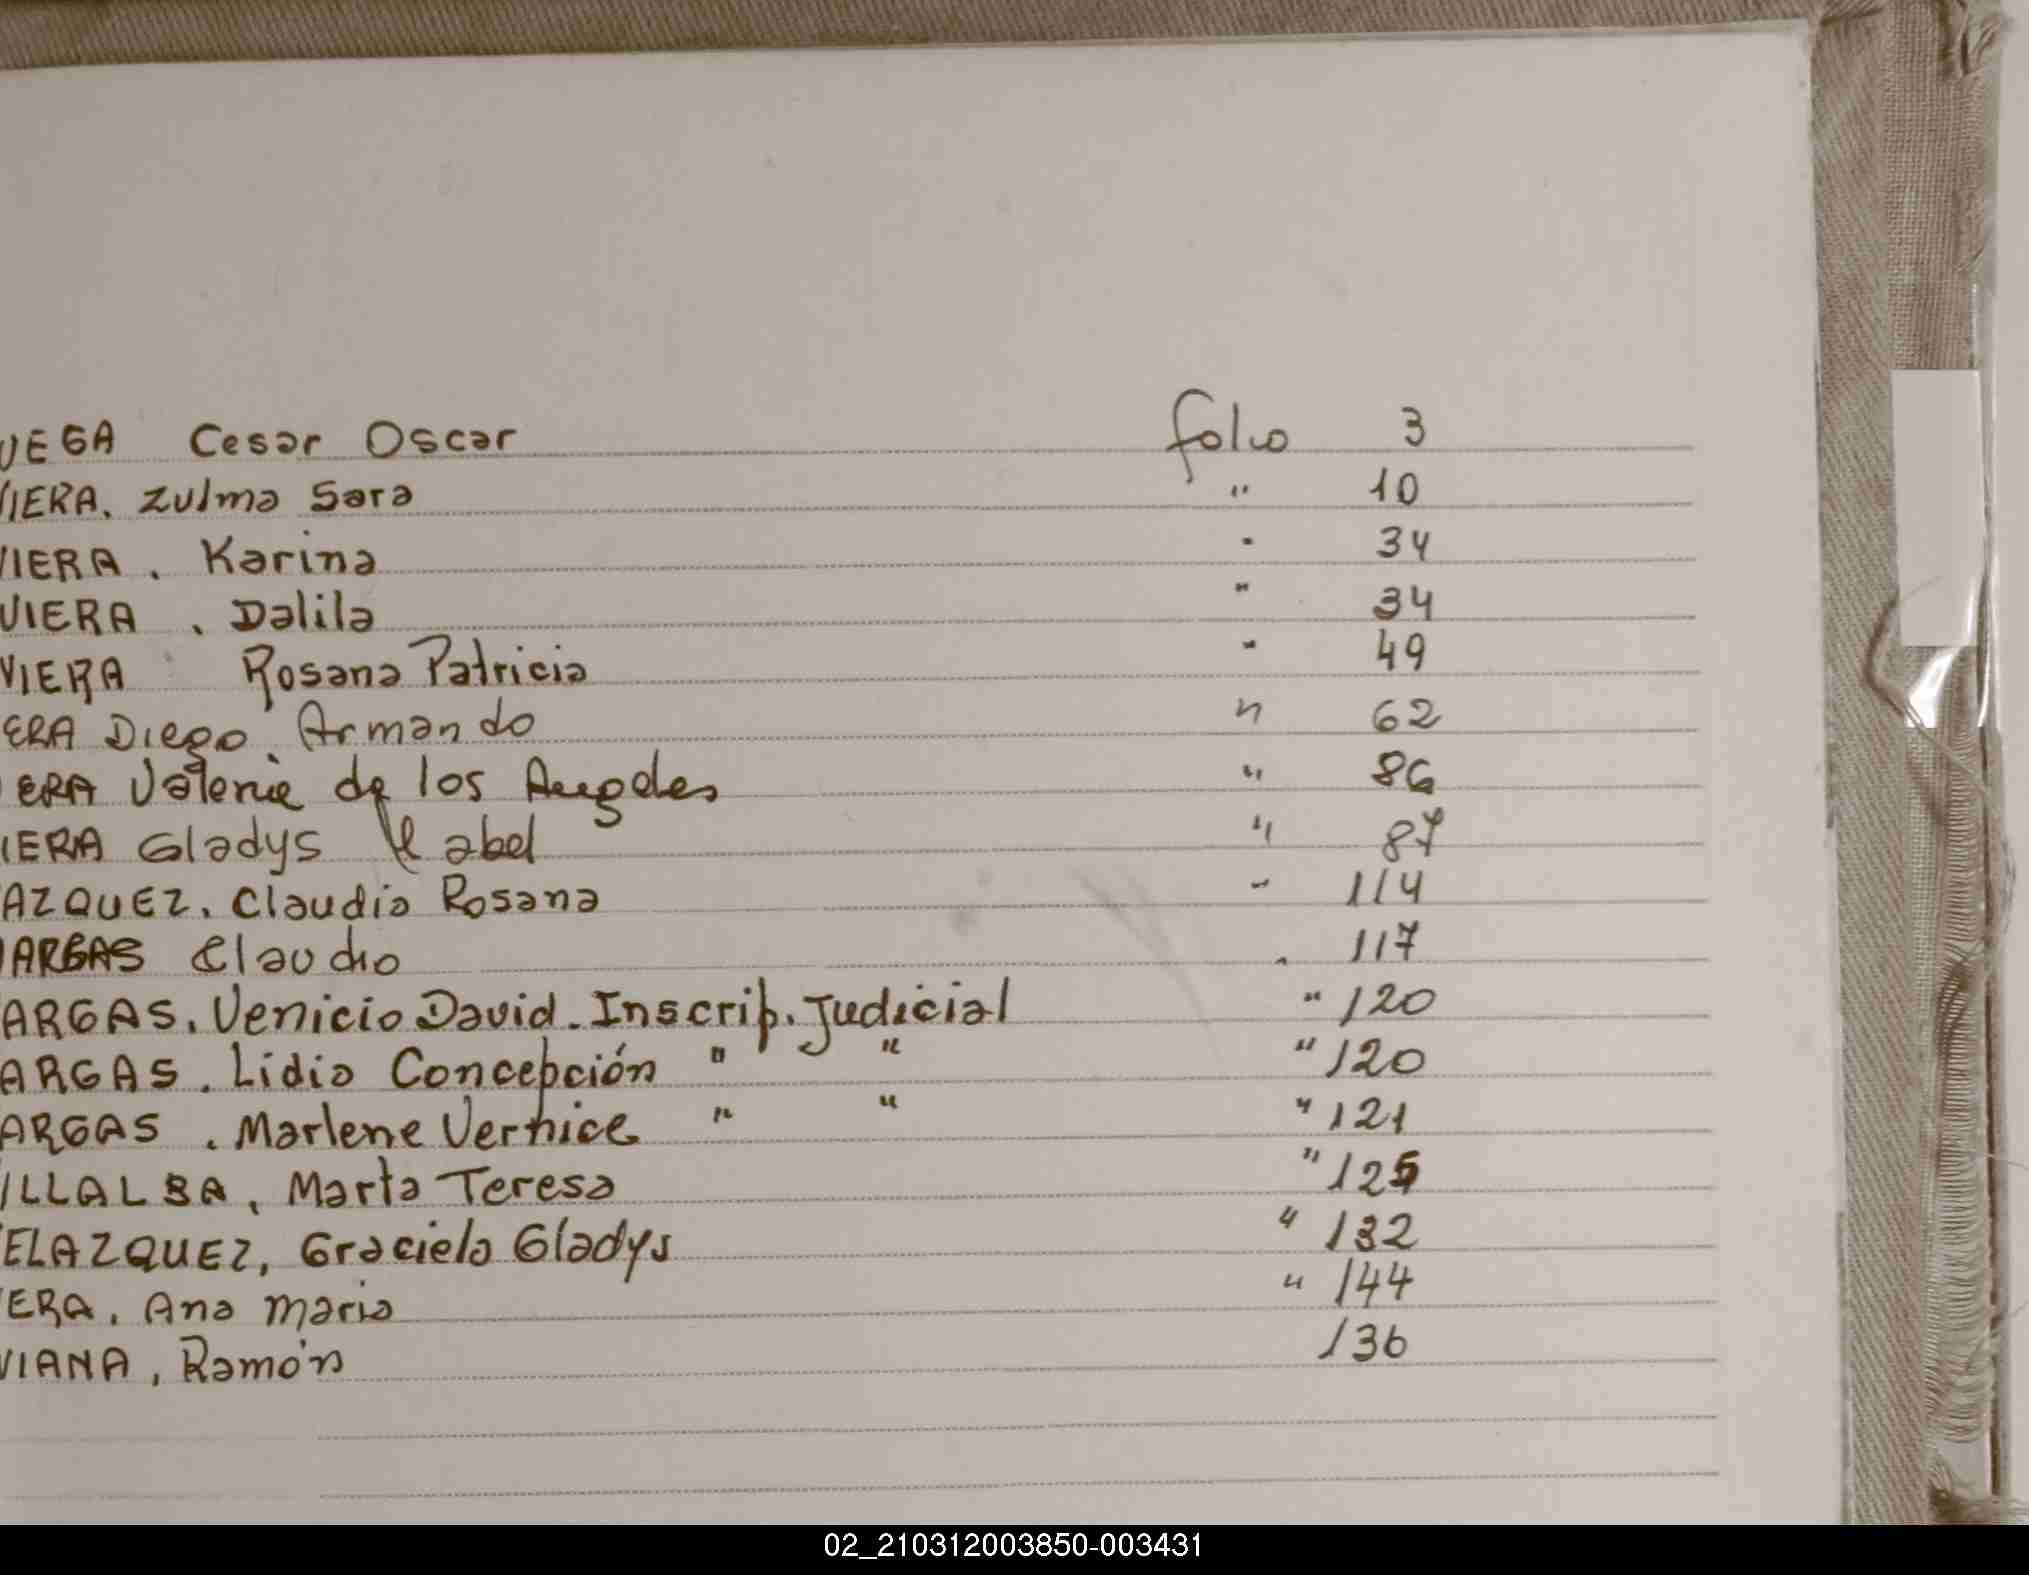 VEGA Cesar Oscar folio 3
VIERA. Zulma Sara " 10
VIERA. Karina " 34
VIERA. Dalila " 34
VIERA Rosana Patricia " 49
ERA Diego Armando " 62
ERA Valerie de los Angeles " 86
IERA Gladys Mabel " 87
AZQUEZ. Claudia Rosana " 114
VARGAS Claudio " 117
ARGAS. Venicio David. Inscrip. Judicial " 120
ARGAS. Lidia Concepción " " " 120
ARGAS. Marlene Vernice " " " 121
ILLALBA, Marta Teresa " 125
ELAZQUEZ, Graciela Gladys " 132
ERA. Ana Maria " 144
VIANA, Ramón 136
02_210312003850-003431